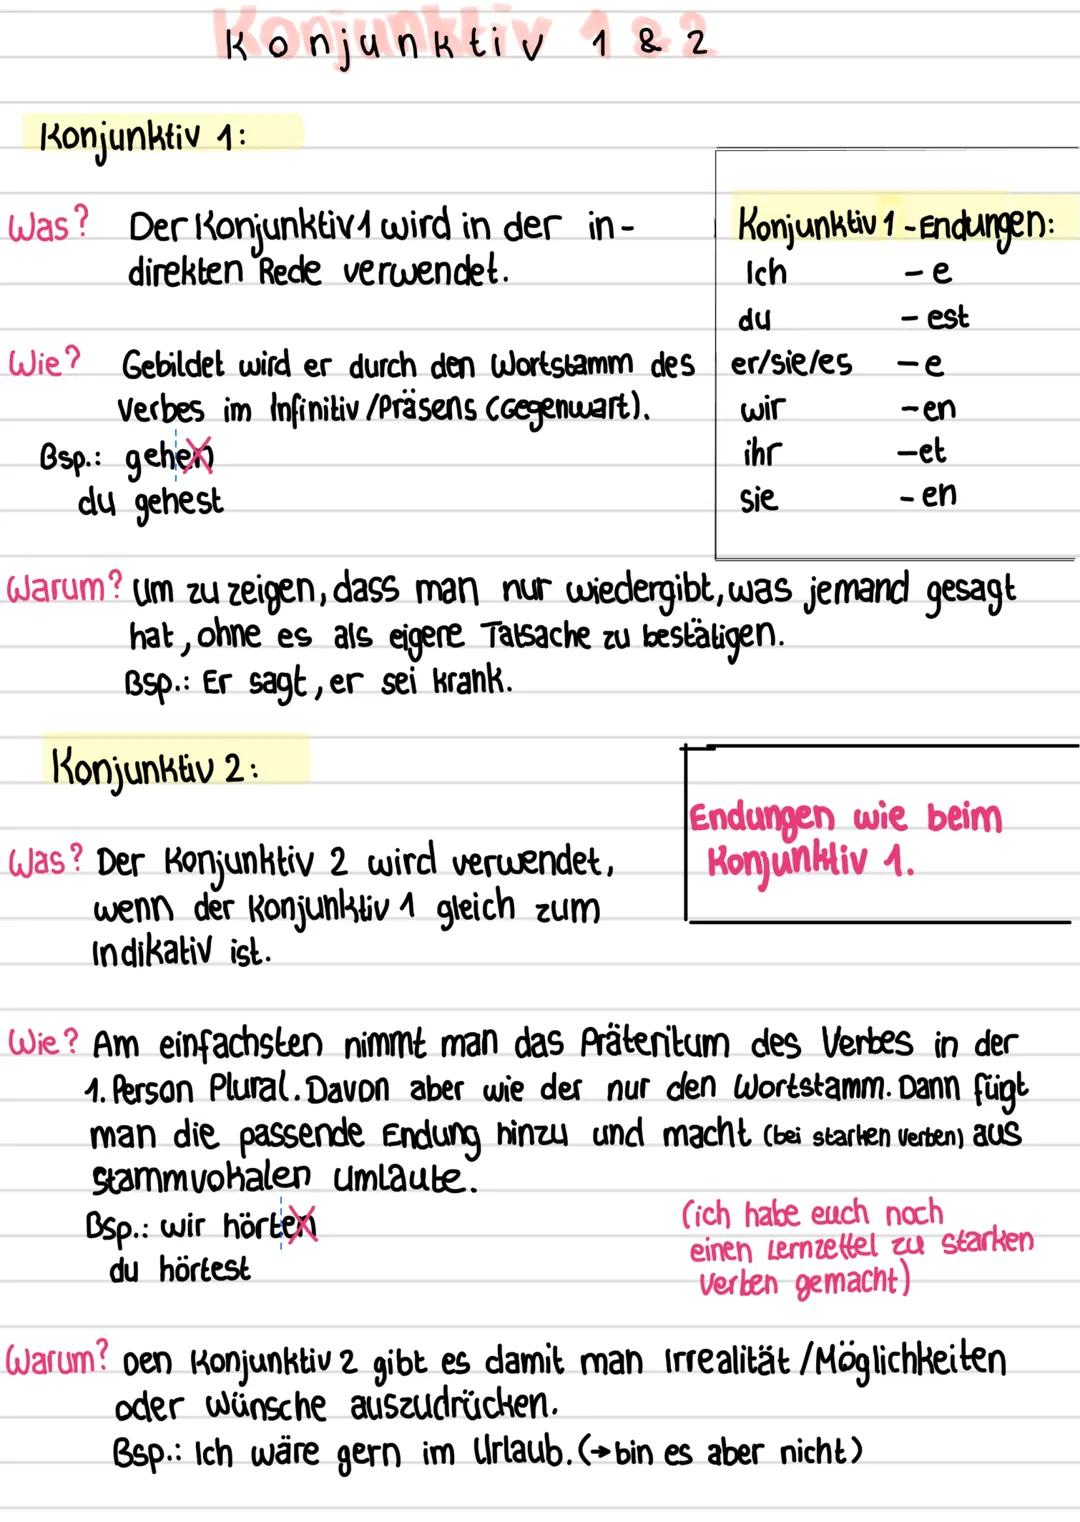 Konjunktiv 1 & 2
Konjunktiv 1:
Was? Der Konjunktiv 1 wird in der in-
direkten Rede verwendet.
Wie? Gebildet wird er durch den Wortstamm des
Verbes im Infinitiv/Präsens (Gegenwart).
Bsp.: gehen
du gehest
Konjunktiv 1 - Endungen:
Ich - e
du - est
er/sie/es - e
wir - en
ihr - et
sie - en
Warum? Um zu zeigen, dass man nur wiedergibt, was jemand gesagt
hat, ohne es als eigere Tatsache zu bestätigen.
Bsp.: Er sagt, er sei krank.
Konjunktiv 2:
Was? Der Konjunktiv 2 wird verwendet,
wenn der Konjunktiv 1 gleich zum
Indikativ ist.
Endungen wie beim
Konjunktiv 1.
Wie? Am einfachsten nimmt man das Präteritum des Verbes in der
1. Person Plural. Davon aber wie der nur den Wortstamm. Dann fügt
man die passende Endung hinzu und macht (bei starken Verben) aus
Stammvokalen Umlaute.
Bsp.: wir hörten
du hörtest
(ich habe euch noch
einen Lernzettel zu starken
Verben gemacht)
Warum? Den Konjunktiv 2 gibt es damit man Irrealität/Möglichkeiten
oder Wünsche auszudrücken.
Bsp.: Ich wäre gern im Urlaub. (→ bin es aber nicht)